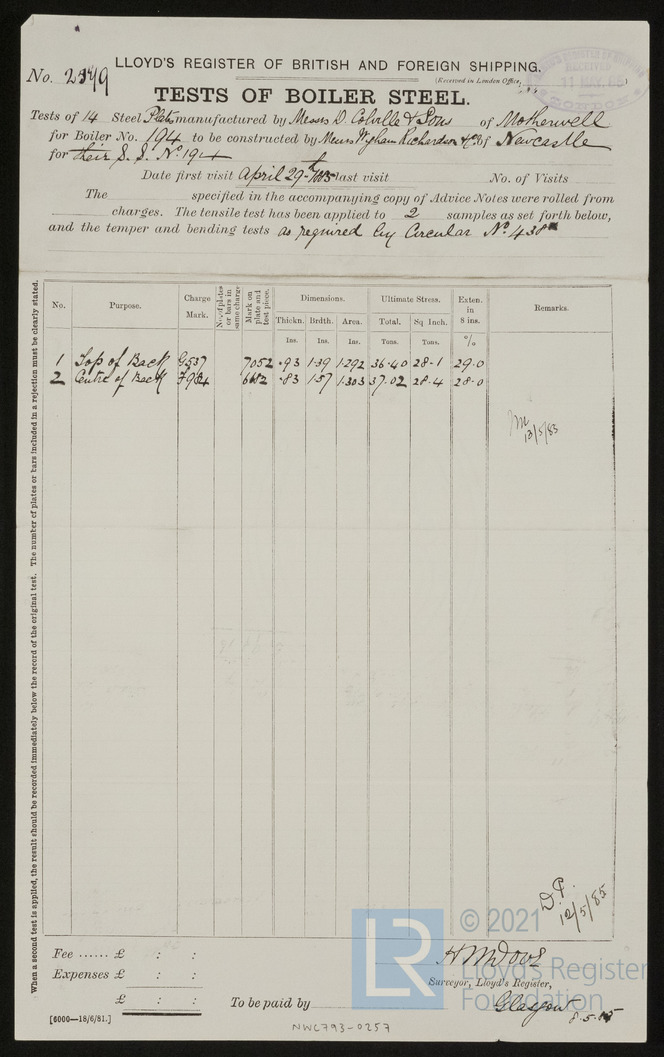 LLOYD'S REGISTER OF BRITISH AND FOREIGN SHIPPING.
No.
(Received in London Office,
RECEIVED
11 MAY. 85
LONDON
TESTS OF BOILER STEEL.
Tests of 14 Steel Plates manufactured by Messrs D. Colville & Sons of Motherwell
for Boiler No. 194 to be constructed by Messrs Wigham Richardson & Co of Newcastle
for their S.S. No. 194
Date first visit April 29th 1885 last visit No. of Visits
The specified in the accompanying copy of Advice Notes were rolled from
charges. The tensile test has been applied to 2 samples as set forth below,
and the temper and bending tests as required by Circular No. 438
When a second test is applied, the result should be recorded immediately below the record of the original test. The number of plates or bars included in a rejection must be clearly stated.
No. Purpose. Charge Mark. No. of plates or bars in same charge Mark on plate and test piece. Dimensions. Ultimate Stress. Exten. in 8 ins. Remarks.
Thickn. Brdth. Area. Total. Sq Inch.
Ins. Ins. Ins. Tons. Tons. %
1 Top of Back G537 7052 .93 1.39 1.292 36.40 28.1 29.0
2 Centre of Back 6682 .83 1.57 1.303 37.02 28.4 28.0
13/5/85
D.P.
12/5/85
© 2021
LR
Lloyd's Register
Foundation
Fee ...... £ : :
Expenses £ : :
£ : :
Surveyor, Lloyd's Register,
To be paid by
Glasgow 8.5.85
[6000—18/6/81.]
NWC793-0257